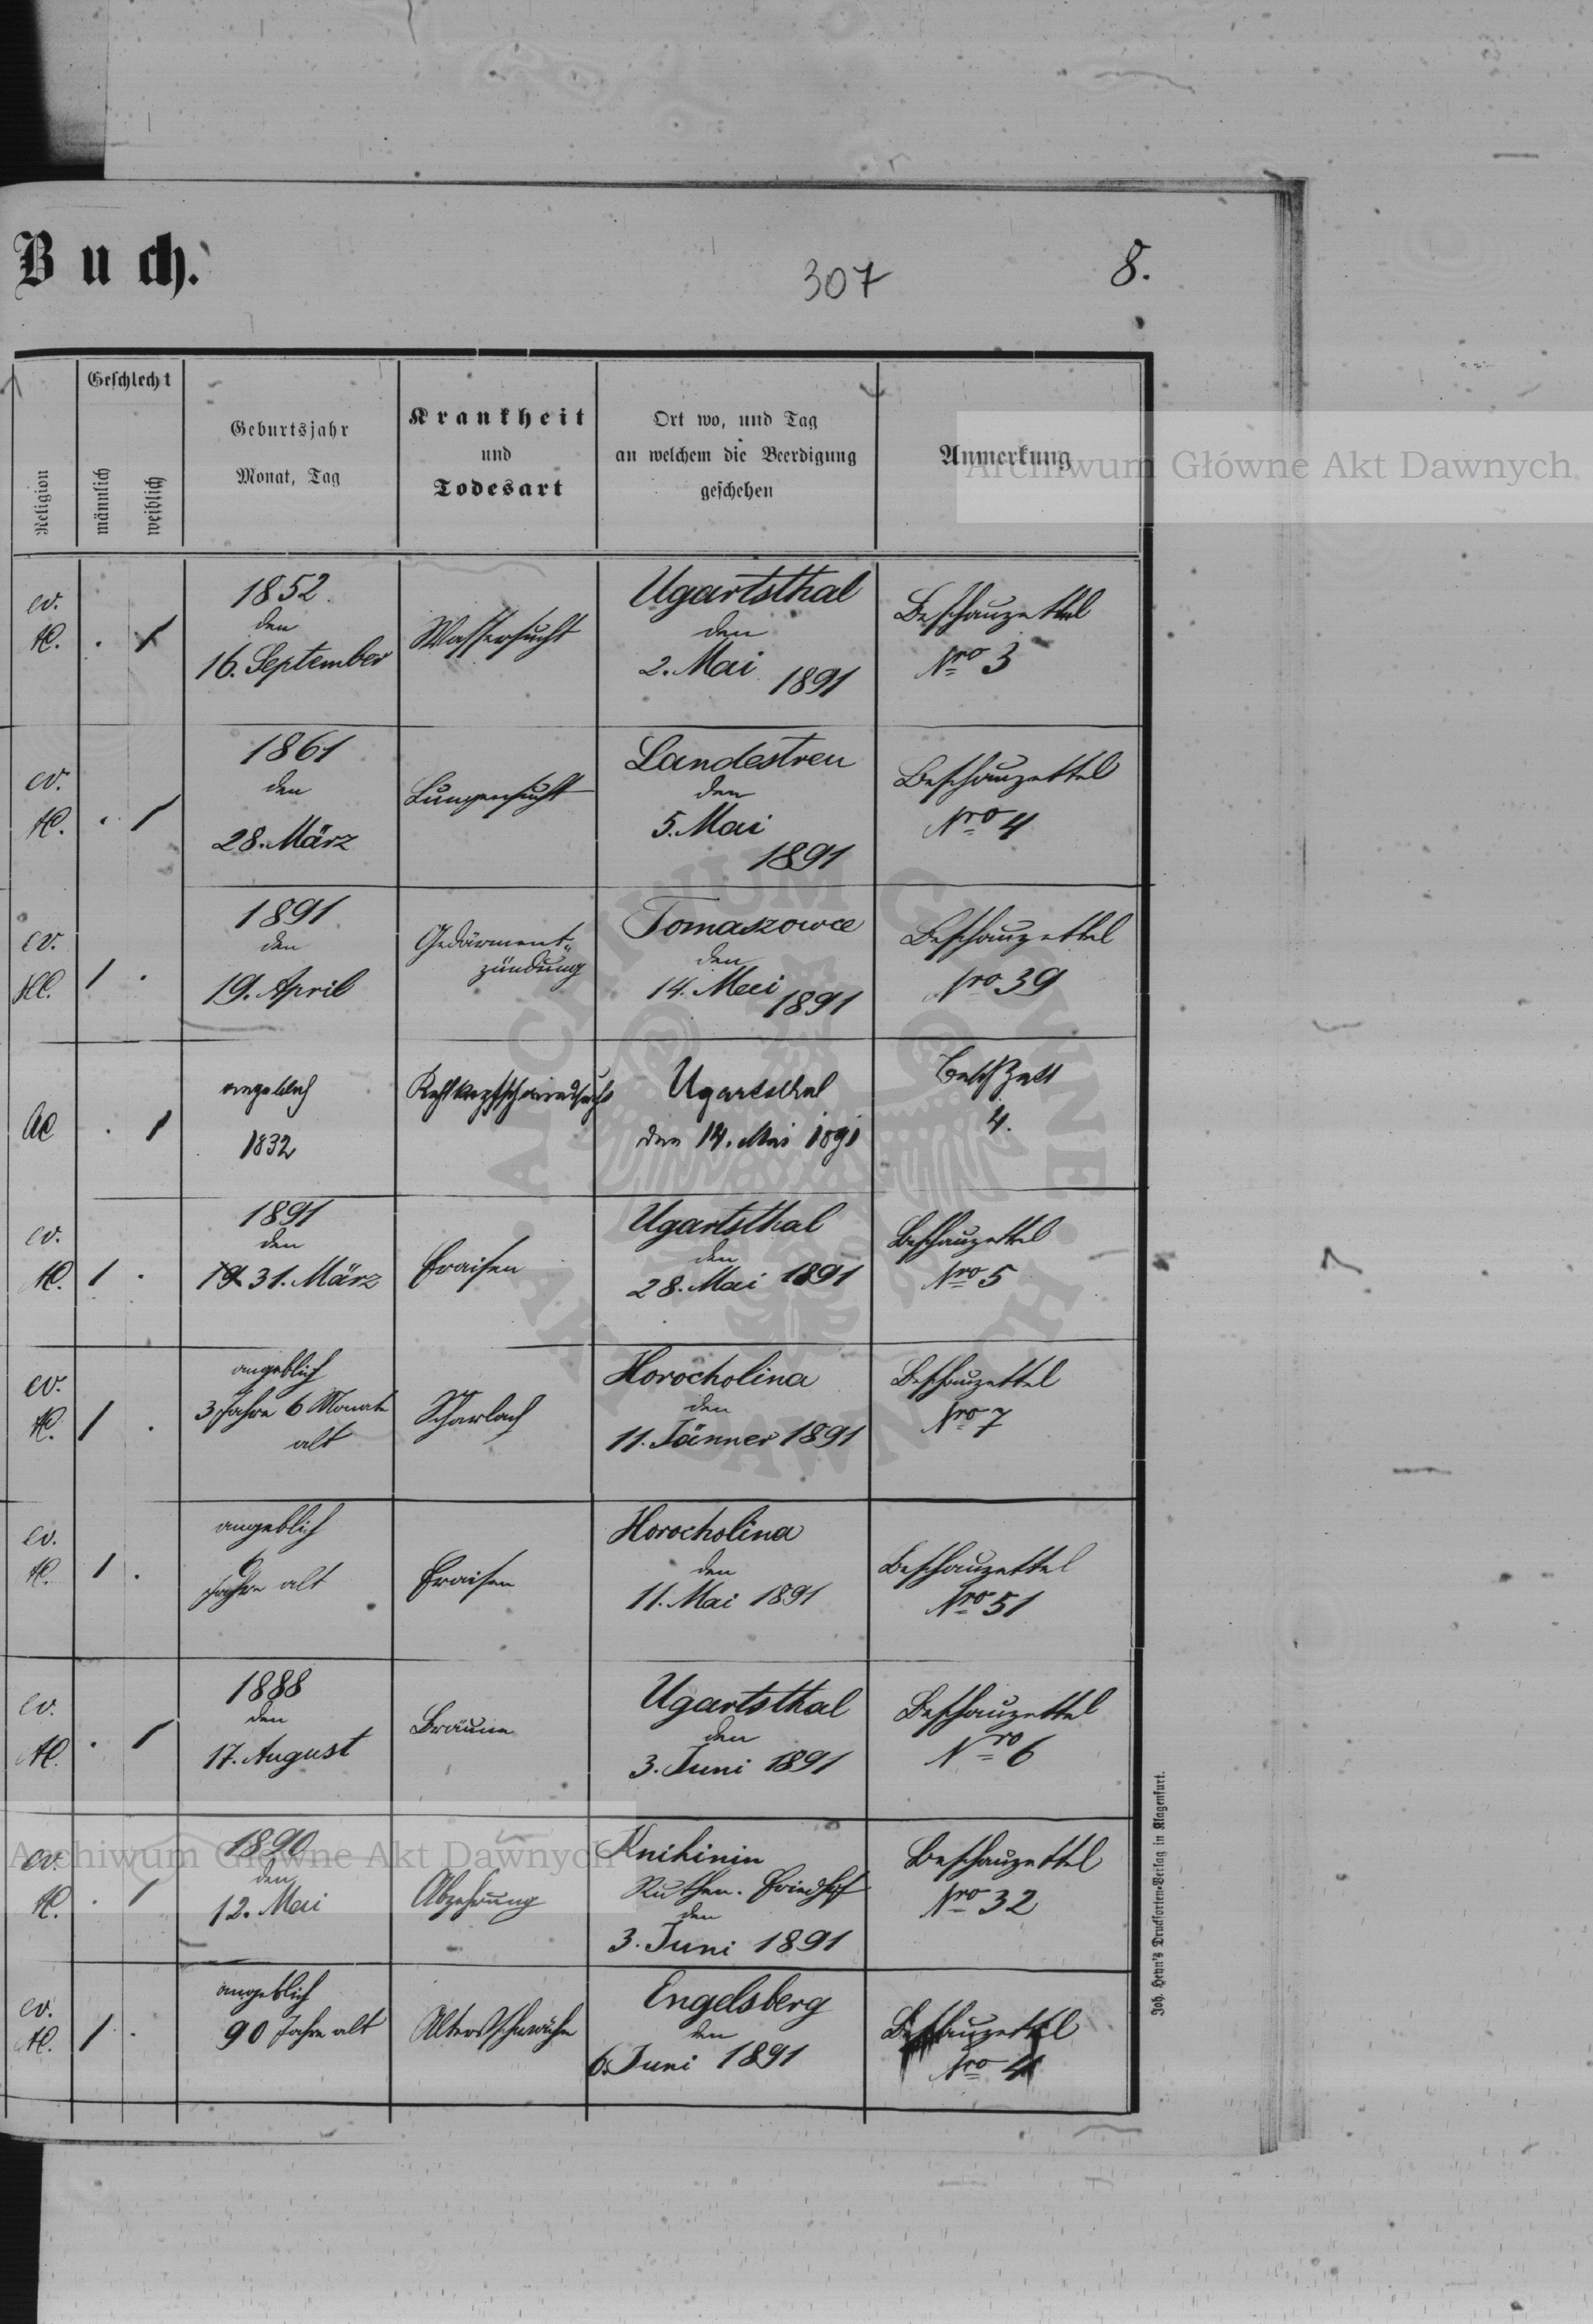 Buch.
307
8.
Religion
Geschlecht
männlich
weiblich
Geburtsjahr
Monat, Tag
Krankheit
und
Todesart
Ort wo, und Tag
an welchem die Beerdigung
geschehen
Anmerkung
Archiwum Główne Akt Dawnych
ev.
HC.
. 1
1852
den
16. September
Wassersucht
Ugartsthal
den
2. Mai 1891
Beschauzettel
Nro 3
ev.
HC.
. 1
1861
den
28. März
Lungensucht
Landestreu
den
5. Mai
1891
Beschauzettel
Nro 4
ev.
HC.
1 .
1891
den
19. April
Gedärment-
zündung
Tomaszowce
den
14. Mai 1891
Beschauzettel
Nro 39
AC
. 1
angeblich
1832
Kehlkopfschwindsucht
Ugartsthal
den 14. Mai 1891
4.
ev.
HC.
1 .
1891
den
31. März
Fraisen
Ugartsthal
den
28. Mai 1891
Beschauzettel
Nro 5
ev.
HC.
1 .
angeblich
3 Jahre 6 Monate
alt
Scharlach
Horocholina
den
11. Jänner 1891
Beschauzettel
Nro 7
ev.
HC.
1 .
angeblich
Jahre alt
Fraisen
Horocholina
den
11. Mai 1891
Beschauzettel
Nro 51
ev.
HC.
. 1
1888
den
17. August
Bräune
Ugartsthal
den
3. Juni 1891
Beschauzettel
Nro 6
ev.
HC.
. 1
1890
den
12. Mai
Abzehrung
Knihinin
Ruthen. Friedhof
den
3. Juni 1891
Beschauzettel
Nro 32
ev.
HC.
1 .
angeblich
90 Jahre alt
Altersschwäche
Engelsberg
den
6. Juni 1891
Beschauzettel
Nro 4
Joh. Heyn's Drucksorten-Verlag in Klagenfurt.
Archiwum Główne Akt Dawnych
ARCHIWUM GŁÓWNE AKT DAWNYCH